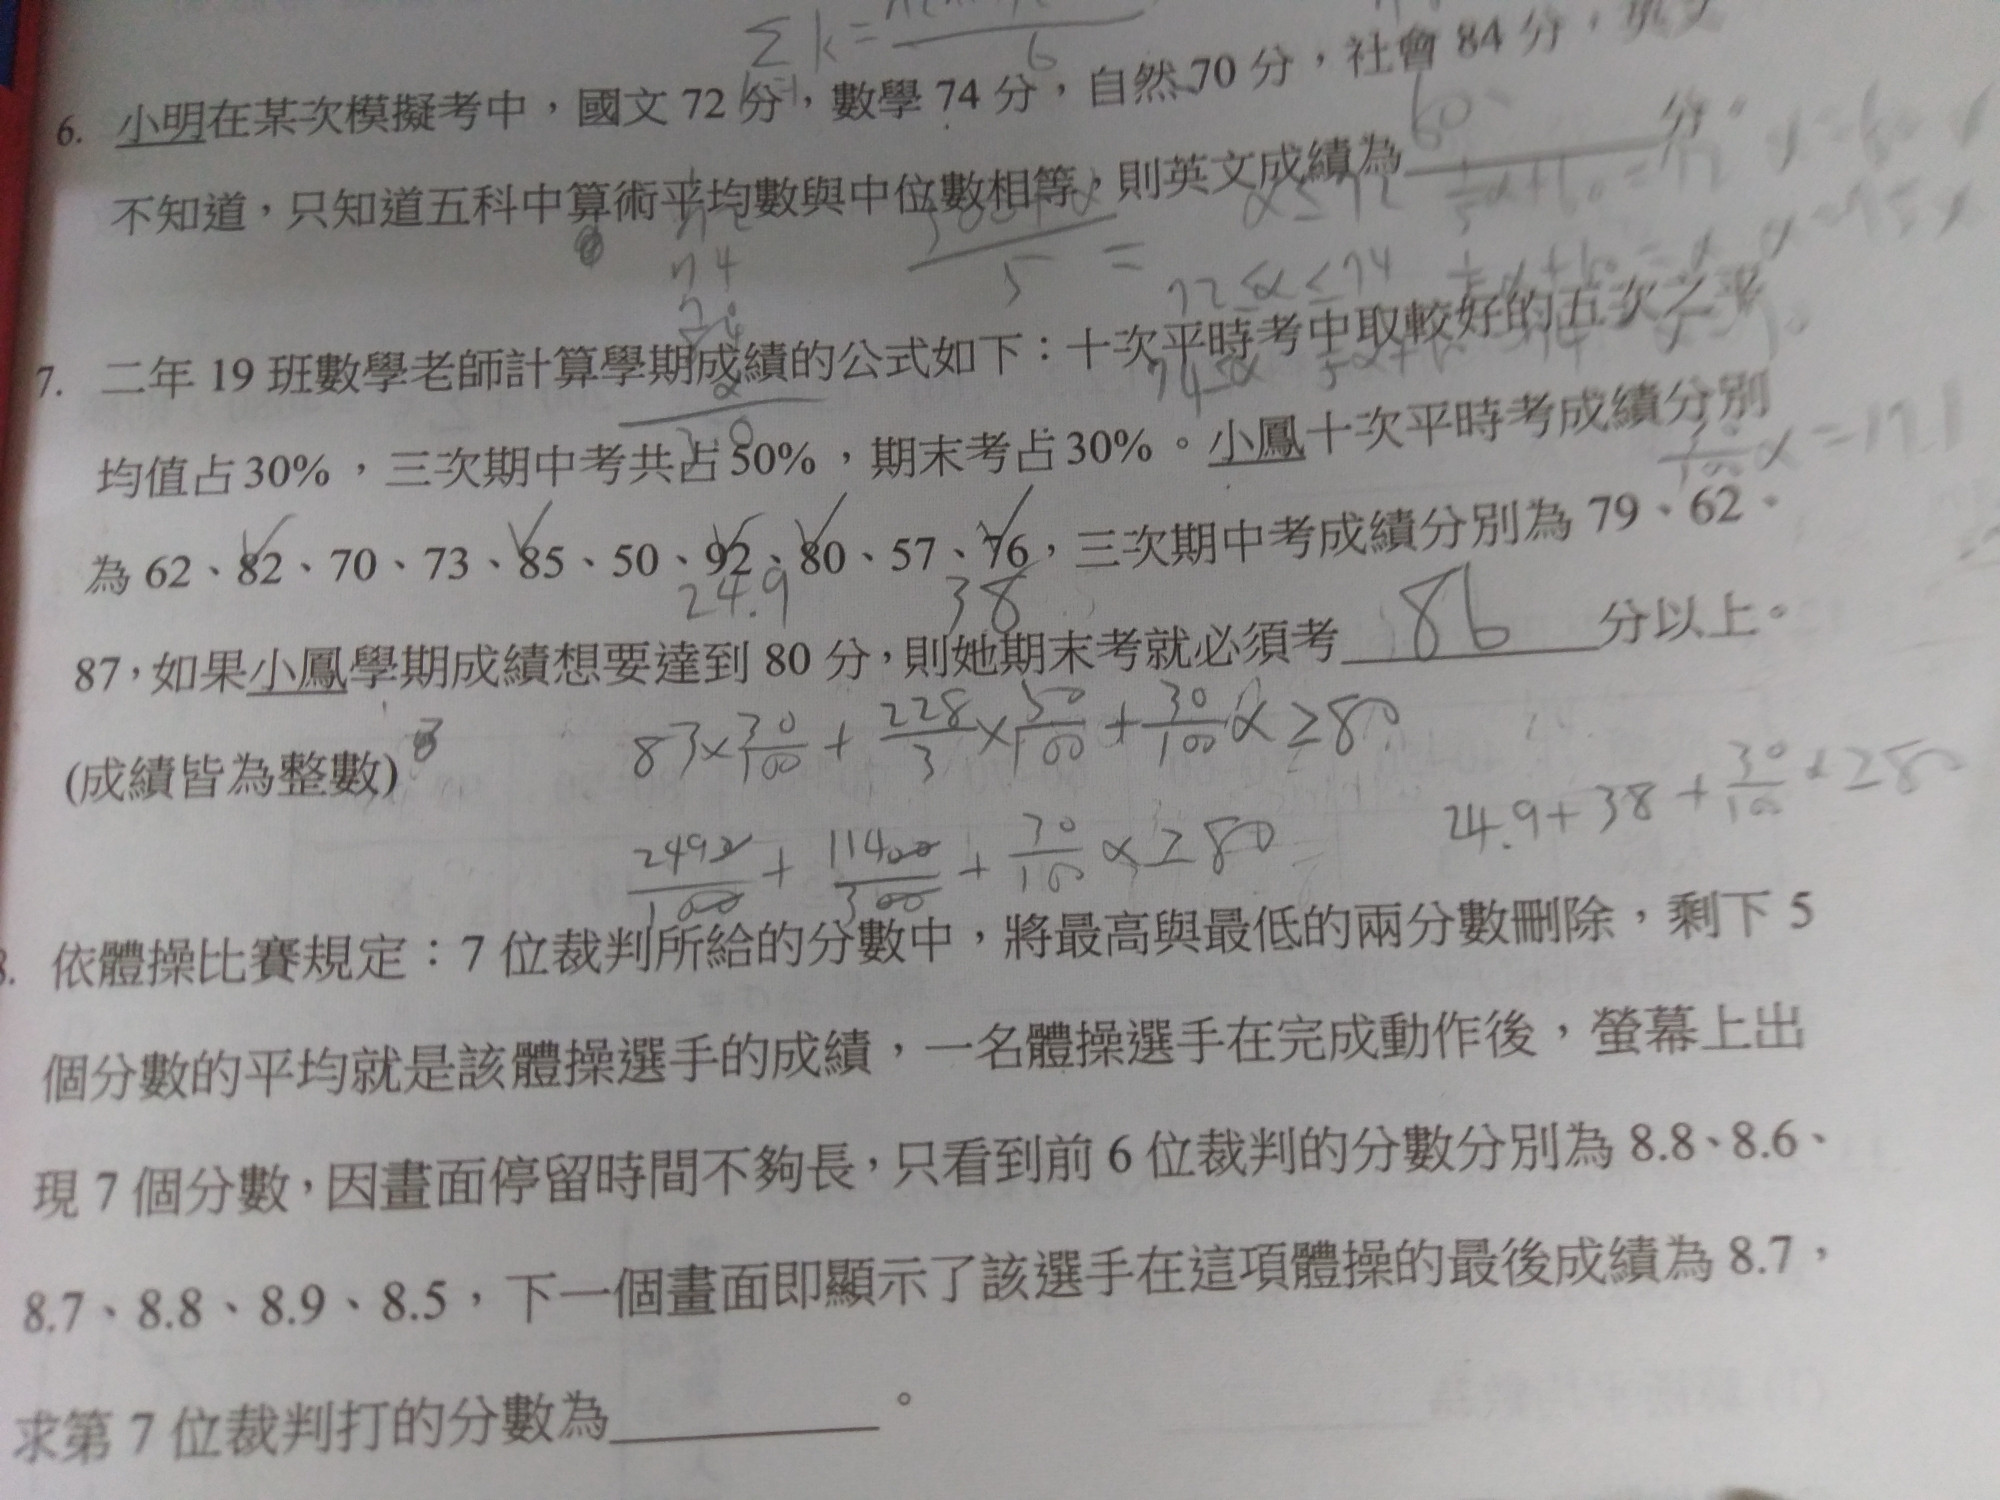 6. 小明在某次模擬考中，國文 72 分，數學 74 分，自然 70 分，社會 84 分，
60
不知道，只知道五科中算術平均數與中位數相等，則英文成績為 分。
72≤α≤74
7. 二年 19 班數學老師計算學期成績的公式如下：十次平時考中取較好的五次之平
均值占 30%，三次期中考共占 50%，期末考占 30%。小鳳十次平時考成績分別
為 62、82、70、73、85、50、92、80、57、76，三次期中考成績分別為 79、62、
24.9 38
87，如果小鳳學期成績想要達到 80 分，則她期末考就必須考 86 分以上。
(成績皆為整數)
83×30/100 + 228/3×50/100 + 30/100 α≥80
2490/100 + 11400/300 + 30/100 α≥80
24.9+38+30/100 α≥80
依體操比賽規定：7 位裁判所給的分數中，將最高與最低的兩分數刪除，剩下 5
個分數的平均就是該體操選手的成績，一名體操選手在完成動作後，螢幕上出
現 7 個分數，因畫面停留時間不夠長，只看到前 6 位裁判的分數分別為 8.8、8.6、
8.7、8.8、8.9、8.5，下一個畫面即顯示了該選手在這項體操的最後成績為 8.7，
求第 7 位裁判打的分數為 。